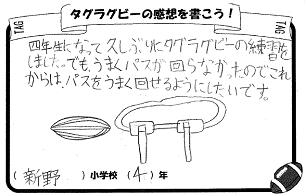 タグラグビーの感想を書こう!
TAG
TAG
四年生になって久しぶりにタグラグビーの練習を
しました。でも、うまくパスが回らなかったのでこれ
からは、パスをうまく回せるようにしたいです。
(新野)小学校(4)年